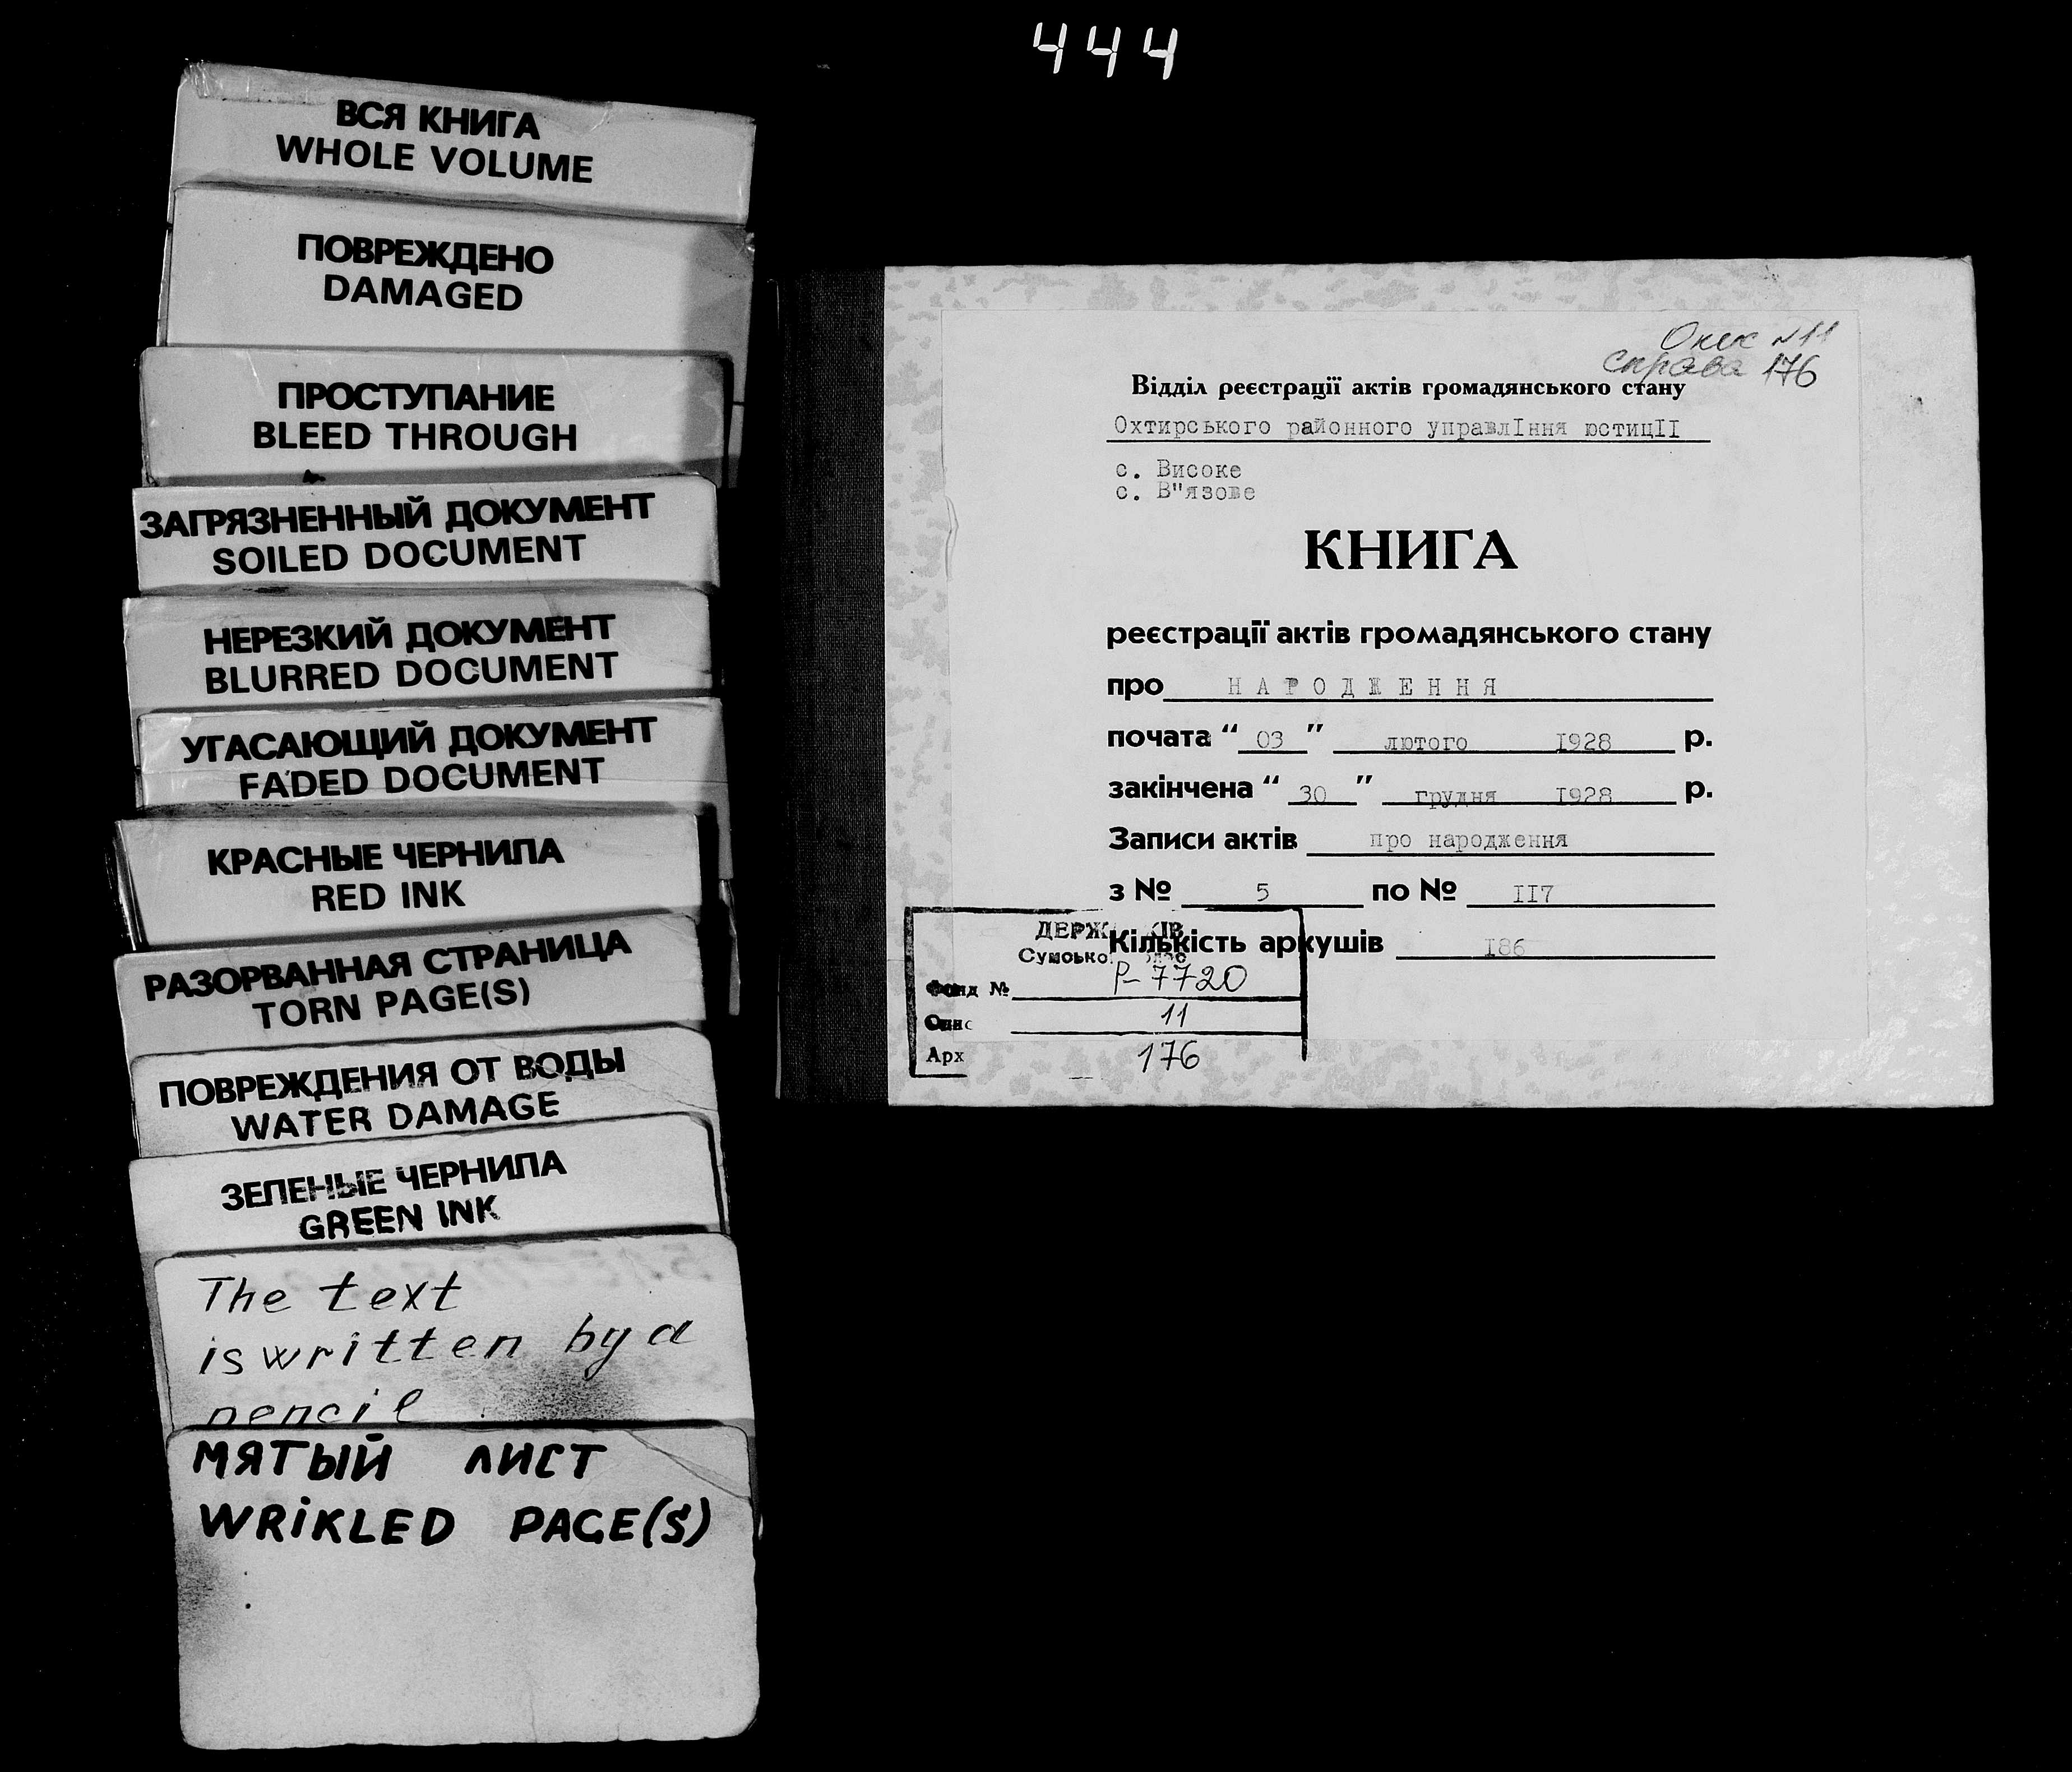 444
ВСЯ КНИГА
WHOLE VOLUME
ПОВРЕЖДЕНО
DAMAGED
ПРОСТУПАНИЕ
BLEED THROUGH
ЗАГРЯЗНЕННЫЙ ДОКУМЕНТ
SOILED DOCUMENT
НЕРЕЗКИЙ ДОКУМЕНТ
BLURRED DOCUMENT
УГАСАЮЩИЙ ДОКУМЕНТ
FADED DOCUMENT
КРАСНЫЕ ЧЕРНИЛА
RED INK
РАЗОРВАННАЯ СТРАНИЦА
TORN PAGE(S)
ПОВРЕЖДЕНИЯ ОТ ВОДЫ
WATER DAMAGE
ЗЕЛЕНЫЕ ЧЕРНИЛА
GREEN INK
The text
is written by a
pencil
МЯТЫЙ ЛИСТ
WRIKLED PAGE(S)
Опис №11
справа 176
Відділ реєстрації актів громадянського стану
Охтирського районного управлIння юстицII
с. Високе
с. В"язове
КНИГА
реєстрації актів громадянського стану
про НАРОДЖЕННЯ
почата “ 03 ” лютого I928 р.
закінчена “ 30 ” грудня I928 р.
Записи актів про народження
з № 5 по № II7
Кількість аркушів I86
ДЕРЖ ІВ
Сумсько
Фонд № Р-7720
Опис 11
Арх 176